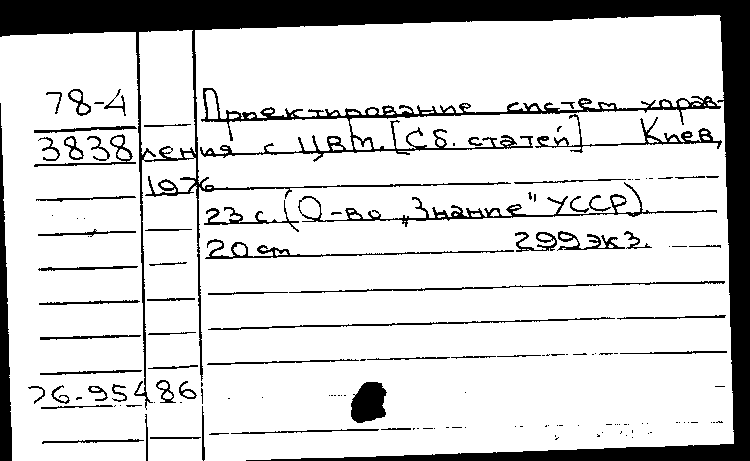 78-4 Проектирование систем управ-
3838 ления с ЦВМ. [Сб. статей] Киев,
1976
23 с. (О-во „Знание" УССР)
20 см. 299 экз.
76-95486